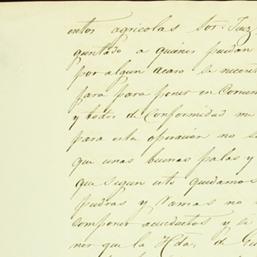 entos agricolas por Juez
guntado a quienes pueden
por algun acaso se necesi
para para poner en Comun
y todos de Conformidad me
para esta operacion no se
que unas buenas palas y
que segun esto quedamos
piedras y ramas no
componer acueductos y se
nor que la Hda. de Gu